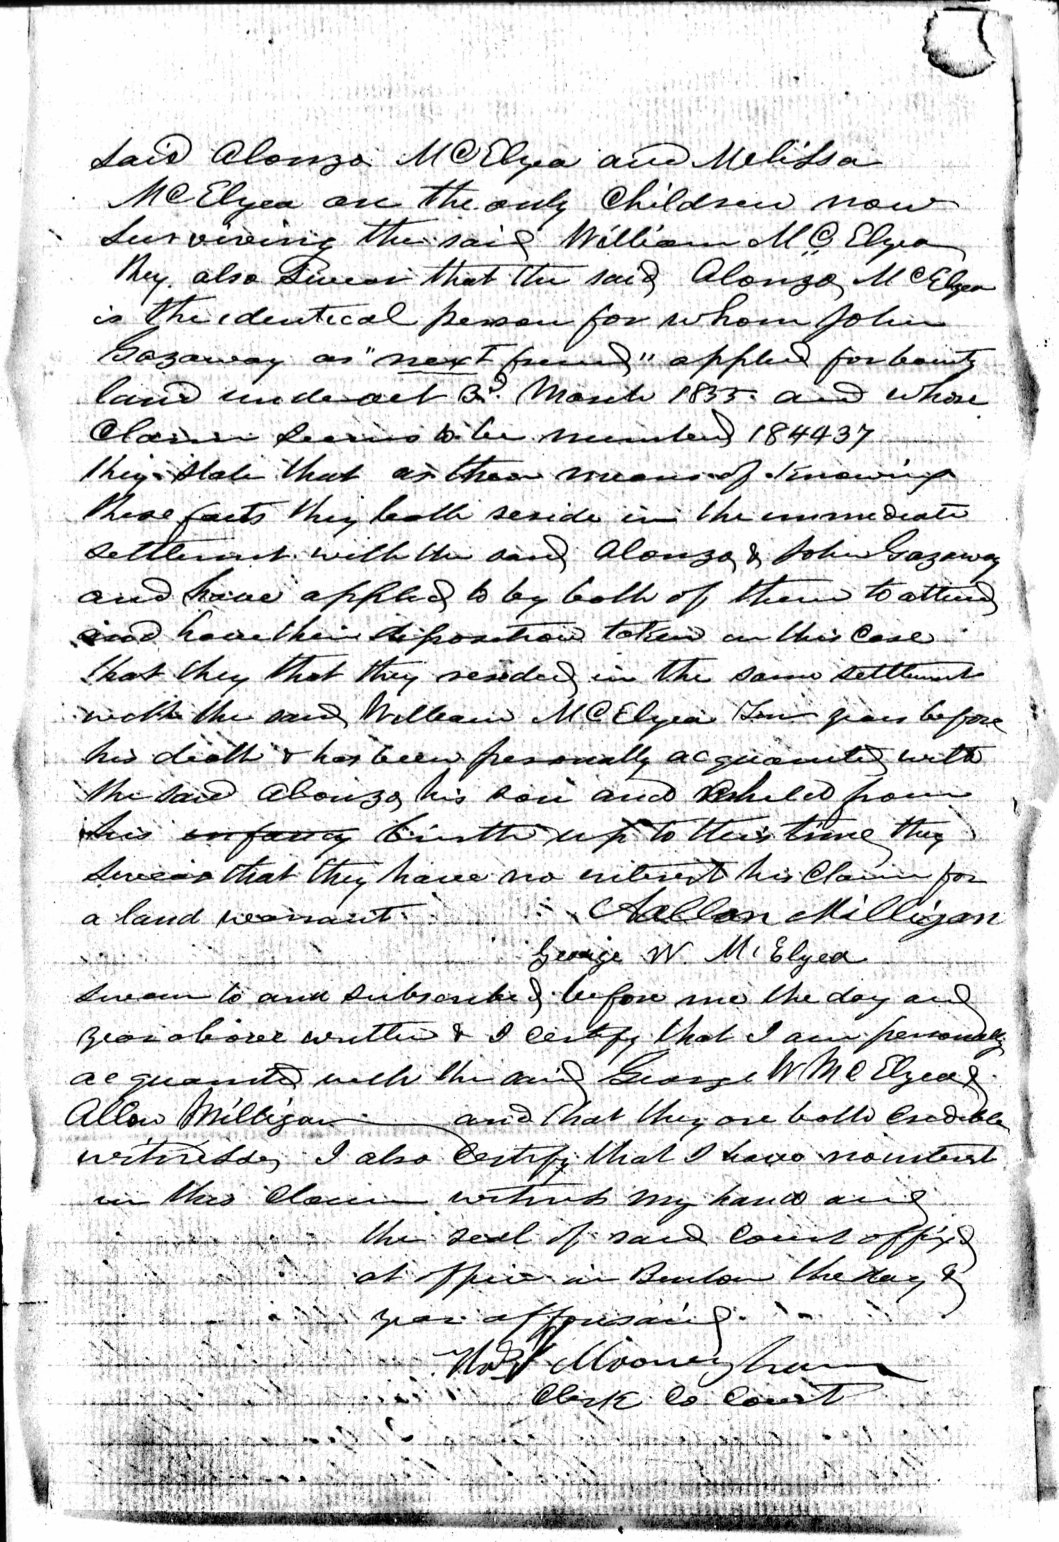 said Alonzo McElyea and Melissa
McElyea are the only Children now
surviving the said William McElyea
they also swear that the said Alonzo McElyea
is the identical person for whom John
Gazaway as "next friend" applied for bounty
land under act 3d. March 1855. and whose
Claim seems to be numbered 184437
they state that as their means of knowing
these facts they both reside in the immediate
settlement with the said Alonzo & John Gazaway
and have applied to by both of them to attend
and have their deposition taken in this case
that they that they resided in the same settlement
with the said William McElyea Ten years before
his death & has been personally acquainted with
the said Alonzo his son and child from
his infancy birth up to this time they
swear that they have no interest his Claim for
a land warrant. Aallan Milligan
George W. McElyea
sworn to and subscribed before me the day and
year above written & I certify that I am personally
acquainted with the said George W McElyea &
Allen Milligan and that they are both credible
witnesses I also certify that I have no interest
in this Claim witness my hand and
the seal of said Court affixed
at office in Benton the day &
year afforesaid.
Mooneyham
Clerk Co Court